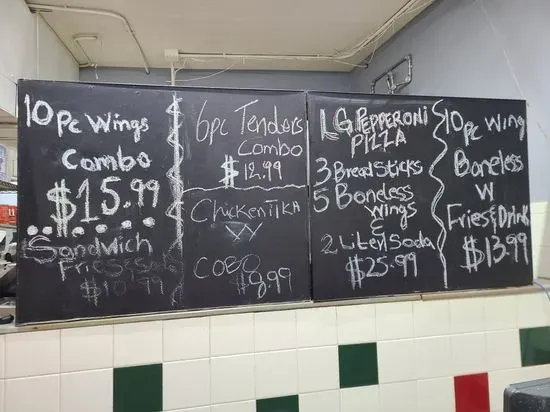 10 Pc Wings
Combo
$15.99
Sandwich
Fries & Soda
$10.99
6pc Tenders
Combo
$12.99
Chicken TIKA
COBO
$9.99
LG PEPPERONI
PIZZA
3 BreadSticks
5 Boneless
Wings
&
2 Liter Soda
$25.99
10 Pc Wing
Boneless
W
Fries & Drink
$13.99